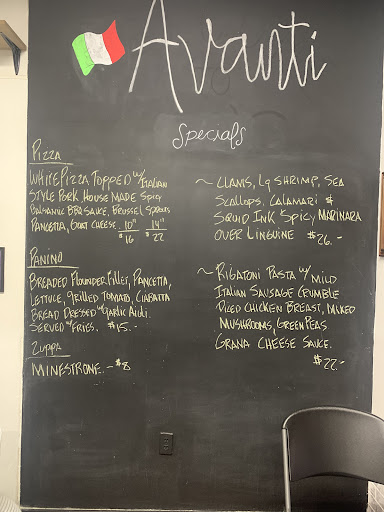 Avanti
Specials
Pizza
WHITE PIZZA TOPPED w/ ITALIAN
STYLE PORK HOUSE MADE SPICY
BALSAMIC BBQ SAUCE, BRUSSEL SPROUTS
PANCETTA, GOAT CHEESE. 10" 14"
$16 $22
PANINO
BREADED FLOUNDER FILLET, PANCETTA,
LETTUCE, GRILLED TOMATO, CIABATTA
BREAD DRESSED w/ GARLIC AIOLI.
SERVED w/ FRIES. $15.-
Zuppa
MINESTRONE.-$8
~ CLAMS, LG SHRIMP, SEA
SCALLOPS, CALAMARI &
SQUID INK SPICY, MARINARA
OVER LINGUINE $26.-
~ RIGATONI PASTA w/ MILD
ITALIAN SAUSAGE CRUMBLE
DICED CHICKEN BREAST,
MUSHROOMS, GREEN PEAS
GRANA CHEESE SAUCE.
$22.-